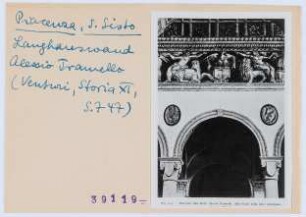 Piacenza, S. Sisto
Langhauswand
Alessio Tramello
(Venturi, Storia XI,
S. 747)
39119-